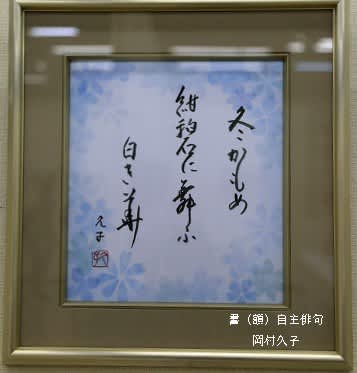 冬かもめ
紺碧に舞ふ
白き華
久子
書（額）自主俳句
岡村久子